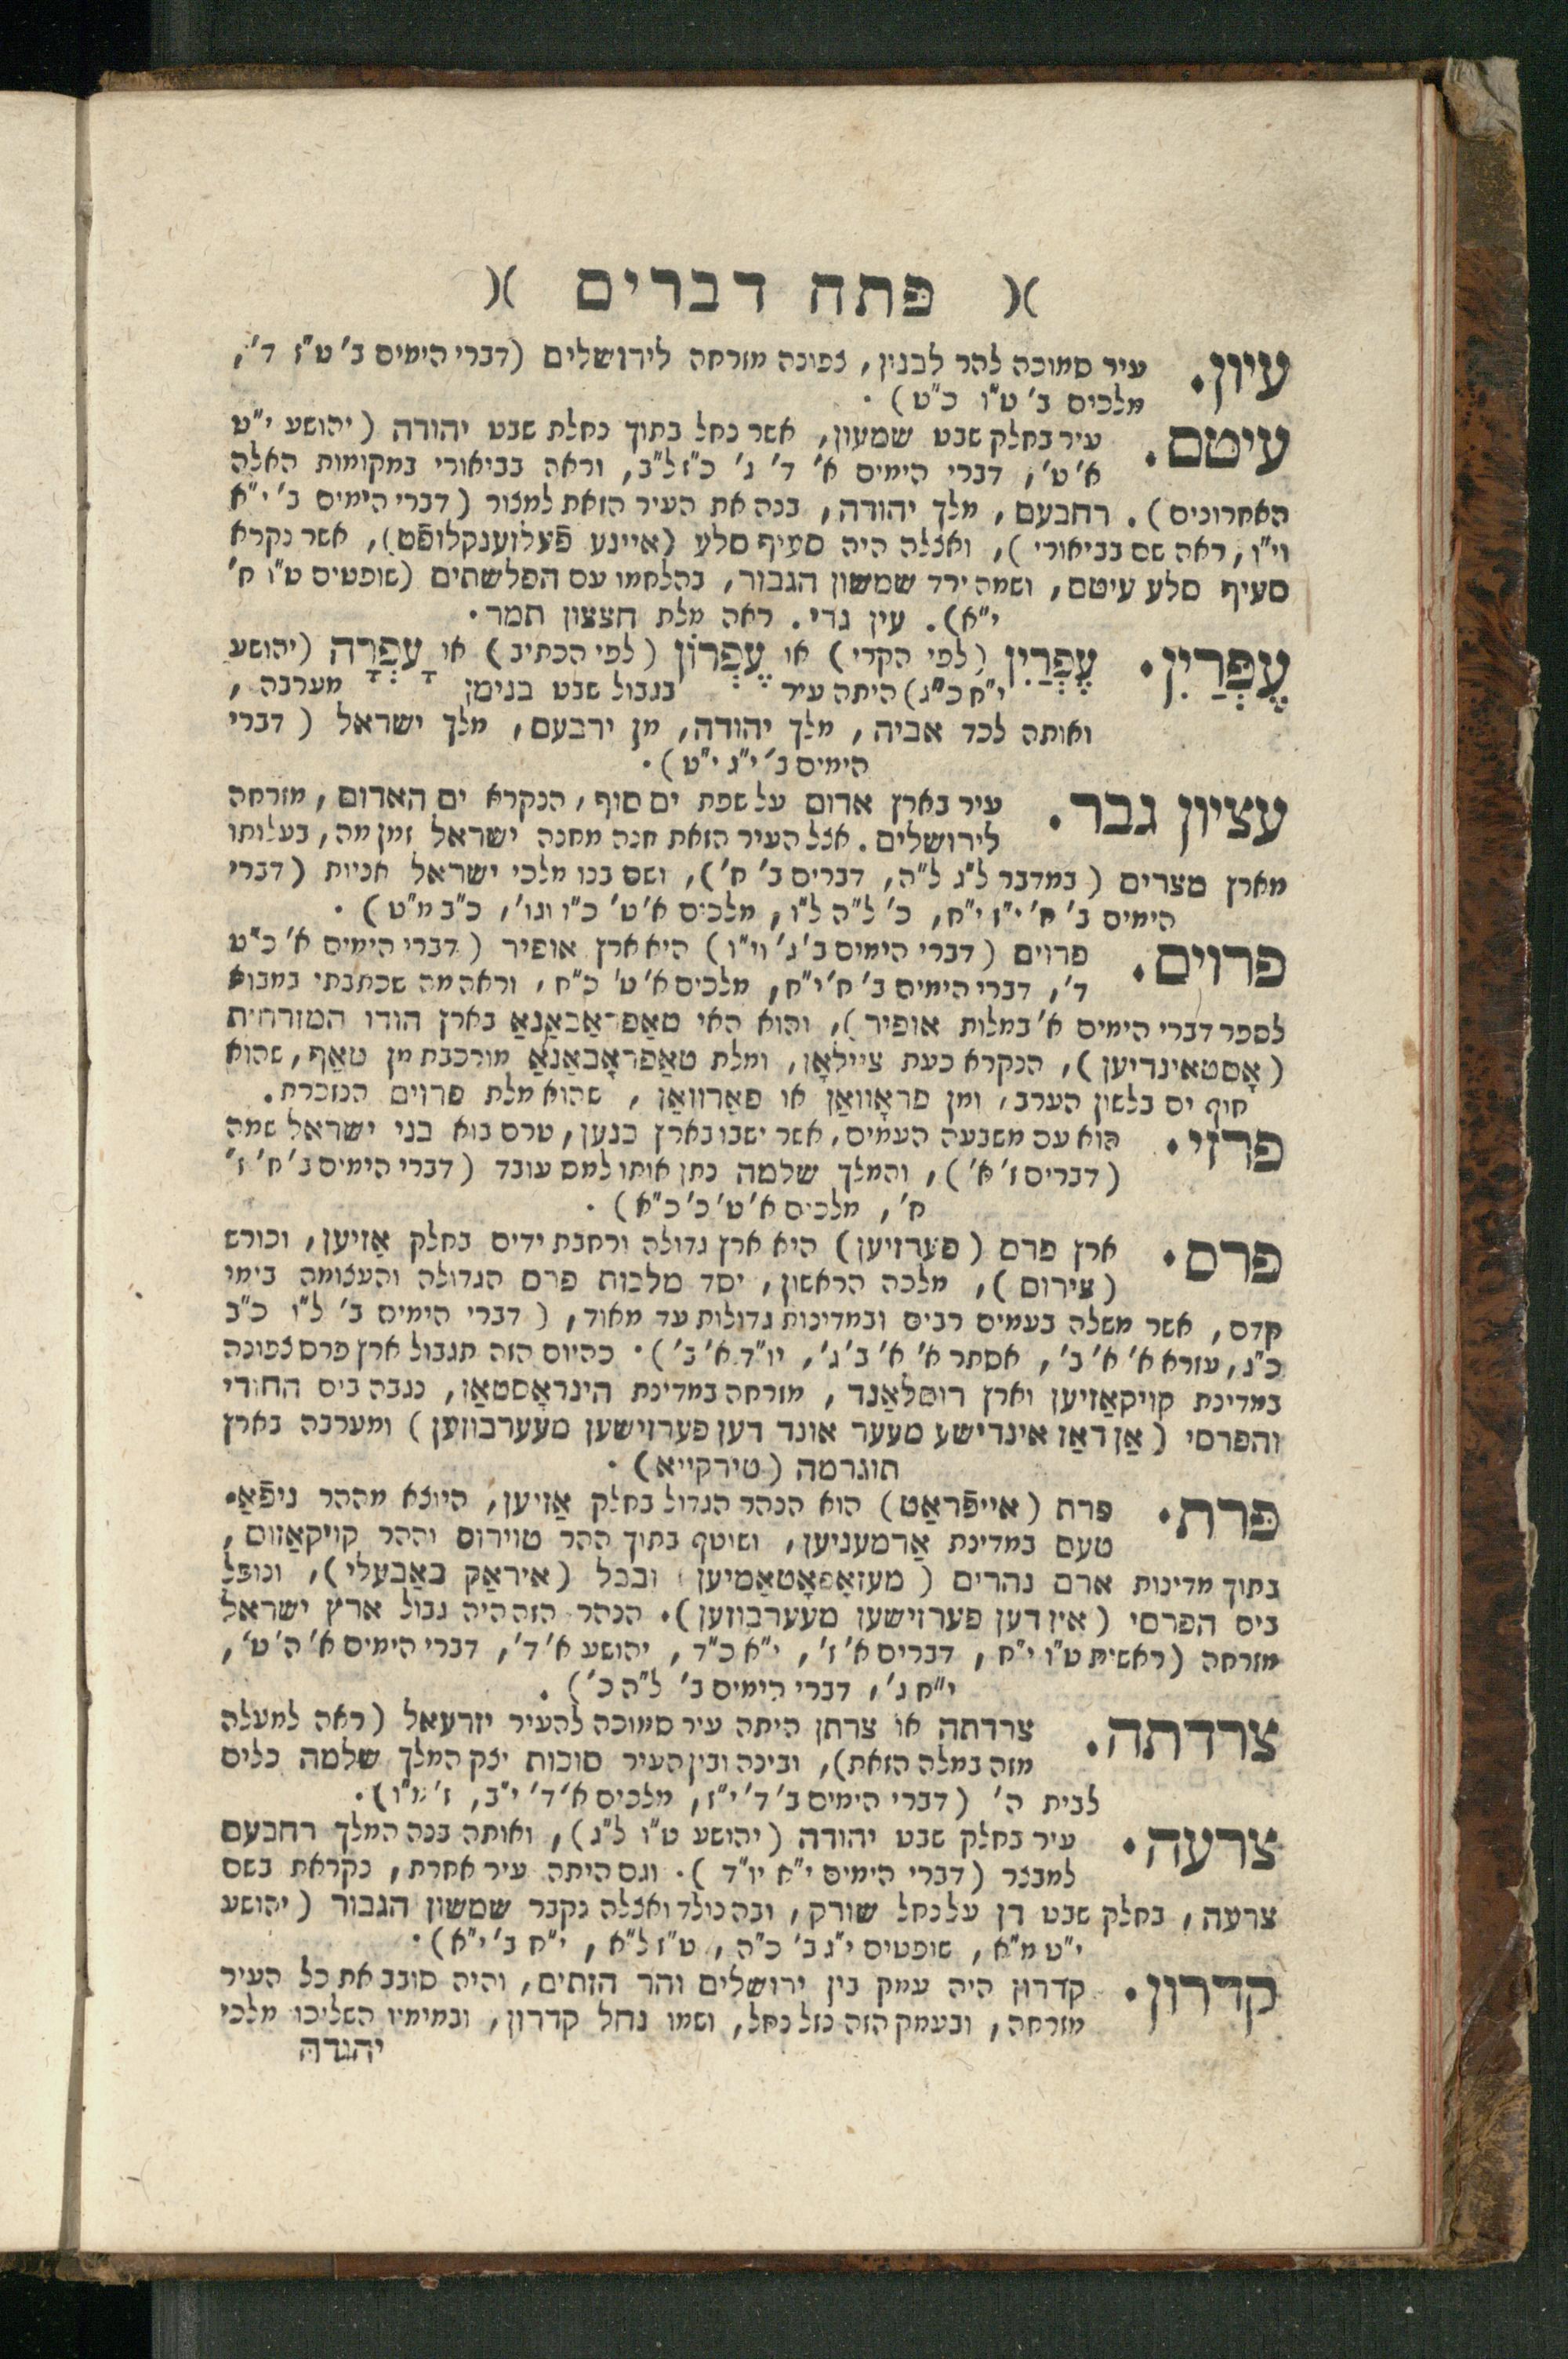 )( פתח דברים )(
עיון. עיר סמוכה להר לבנון, צפונה מזרחה לירושלים (דברי הימים ב' ט"ז ד',
מלכים ב' ט"ו כ"ט).
עיטם. עיר בחלק שבט שמעון, אשר נחל בתוך נחלת שבט יהודה (יהושע י"ט
א' ט', דברי הימים א' ד' ג' כ"ז ל"ב, וראה בביאורי במקומות האלה
האחרונים). רחבעם, מלך יהודה, בנה את העיר הזאת למצור (דברי הימים ב' י"א
וי"ו, ראה שם בביאורי), ואצלה היה סעיף סלע (איינע פֿעלזענקלופֿט), אשר נקרא
סעיף סלע עיטם, ושמה ירד שמשון הגבור, בהלחמו עם הפלשתים (שופטים ט"ו ח'
י"א). עין גדי. ראה מלת חצצון תמר.
עֶפְרַיִן. עֶפְרַיִן (לפי הקרי) או עֶפְרוֹן (לפי הכתיב) או עָפְרָה (יהושע
י"ח כ"ג) היתה עיר בגבול שבט בנימן מערבה,
ואותה לכד אביה, מלך יהודה, מן ירבעם, מלך ישראל (דברי
הימים ב' י"ג י"ט).
עציון גבר. עיר בארץ אדום על שפת ים סוף, הנקרא ים האדום, מזרחה
לירושלים. אצל העיר הזאת חנה מחנה ישראל זמן מה, בעלותו
מארץ מצרים (במדבר ל"ג ל"ה, דברים ב' ח'), ושם בנו מלכי ישראל אניות (דברי
הימים ב' ח' י"ז י"ח, כ' ל"ה ל"ו, מלכים א' ט' כ"ו וגו', כ"ב מ"ט).
פרוים. פרוים (דברי הימים ב' ג' וי"ו) היא ארץ אופיר (דברי הימים א' כ"ט
ד', דברי הימים ב' ח' י"ח, מלכים א' ט' כ"ח, וראה מה שכתבתי במבוא
לספר דברי הימים א' במלות אופיר), והוא האי טאַפראַבאַנאַ בארץ הודו המזרחית
(אָסטאינדיען), הנקרא כעת ציילאָן, ומלת טאַפראָבאַנאַ מורכבת מן טאַף, שהוא
חוף ים בלשון הערב, ומן פראָוואַן או פאַרוואַן, שהוא מלת פרוים הנזכרת.
פרזי. הוא עם משבעה העמים, אשר ישבו בארץ כנען, טרם בוא בני ישראל שמה
(דברים ז' א'), והמלך שלמה נתן אותו למס עובד (דברי הימים ב' ח' ז'
ח', מלכים א' ט' כ' כ"א).
פרס. ארץ פרס (פערזיען) היא ארץ גדולה ורחבת ידים בחלק אַזיען, וכורש
(צירוס), מלכה הראשון, יסד מלכות פרס הגדולה והעצומה בימי
קדם, אשר משלה בעמים רבים ובמדינות גדולות עד מאוד, (דברי הימים ב' ל"ו כ"ב
כ"ג, עזרא א' א' ב', אסתר א' א' ב' ג', יו"ד א' ב'). כהיום הזה תגבול ארץ פרס צפונה
במדינת קויקאַזיען וארץ רוסלאַנד, מזרחה במדינת הינדאָסטאַן, נגבה בים ההודי
והפרסי (אַן דאַז אינדישע מעער אונד דען פערזישען מעערבוזען) ומערבה בארץ
תוגרמה (טירקייא).
פרת. פרת (אייפֿראַט) הוא הנהר הגדול בחלק אַזיען, היוצא מההר ניפֿאַ-
טעס במדינת אַרמעניען, ושוטף בתוך ההר טוירוס וההר קויקאַזוס,
בתוך מדינות ארם נהרים (מעזאָפאָטאַמיען) ובבל (איראַק באַבעלי), ונופל
בים הפרסי (אין דען פערזישען מעערבוזען). הנהר הזה היה גבול ארץ ישראל
מזרחה (ראשית ט"ו י"ח, דברים א' ז', י"א כ"ד, יהושע א' ד', דברי הימים א' ה' ט',
י"ח ג', דברי הימים ב' ל"ה כ').
צרדתה. צרדתה או צרתן היתה עיר סמוכה להעיר יזרעאל (ראה למעלה
מזה במלה הזאת), ובינה ובין העיר סוכות יצק המלך שלמה כלים
לבית ה' (דברי הימים ב' ד' י"ז, מלכים א' ד' י"ב, ז' מ"ו).
צרעה. עיר בחלק שבט יהודה (יהושע ט"ו ל"ג), ואותה בנה המלך רחבעם
למבצר (דברי הימים י"א יו"ד). וגם היתה עיר אחרת, נקראת בשם
צרעה, בחלק שבט דן על נחל שורק, ובה נולד ואצלה נקבר שמשון הגבור (יהושע
י"ט מ"א, שופטים י"ג ב' כ"ה, ט"ז ל"א, י"ח ב' י"א).
קדרון. קדרון היה עמק בין ירושלים והר הזתים, והיה סובב את כל העיר
מזרחה, ובעמק הזה נזל נחל, ושמו נחל קדרון, ובמימיו השליכו מלכי
יהודה